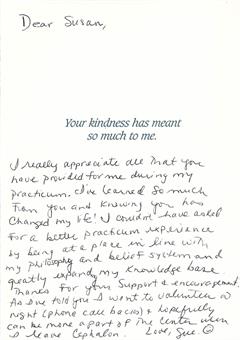 Dear Susan,
Your kindness has meant
so much to me.
I really appreciate all that you
have provided for me during my
practicum. I've learned so much
from you and knowing you has
changed my life! I couldn't have asked
for a better practicum experience
by being at a place in line with
my philosophy and belief system and
greatly expand my knowledge base.
Thanks for your support & encouragement.
As I've told you I want to volunteer a
night (phone call backs) & hopefully
can be more a part of The Center when
I leave Cephalon. Love, Sue